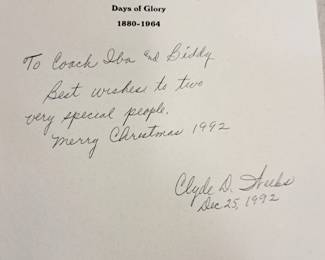 Days of Glory
1880-1964
To Coach Iba and Biddy
Best wishes to two
very special people.
Merry Christmas 1992
Clyde D.
Dec 25, 1992